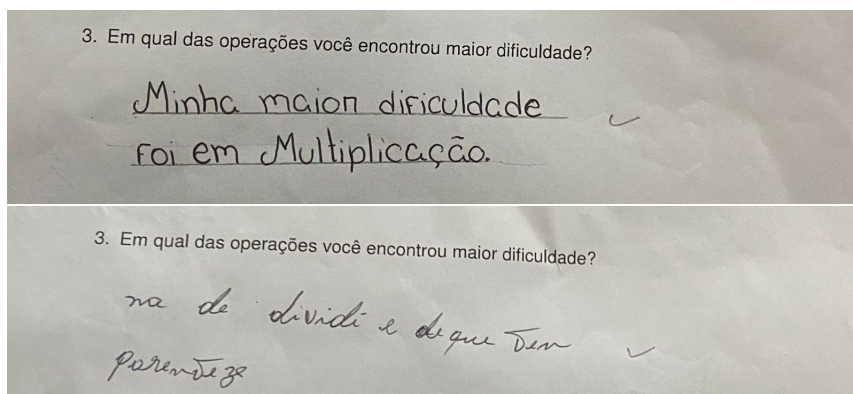 3. Em qual das operações você encontrou maior dificuldade?
Minha maior dificuldade
foi em Multiplicação.
3. Em qual das operações você encontrou maior dificuldade?
na de dividi e de que tem
parenteze